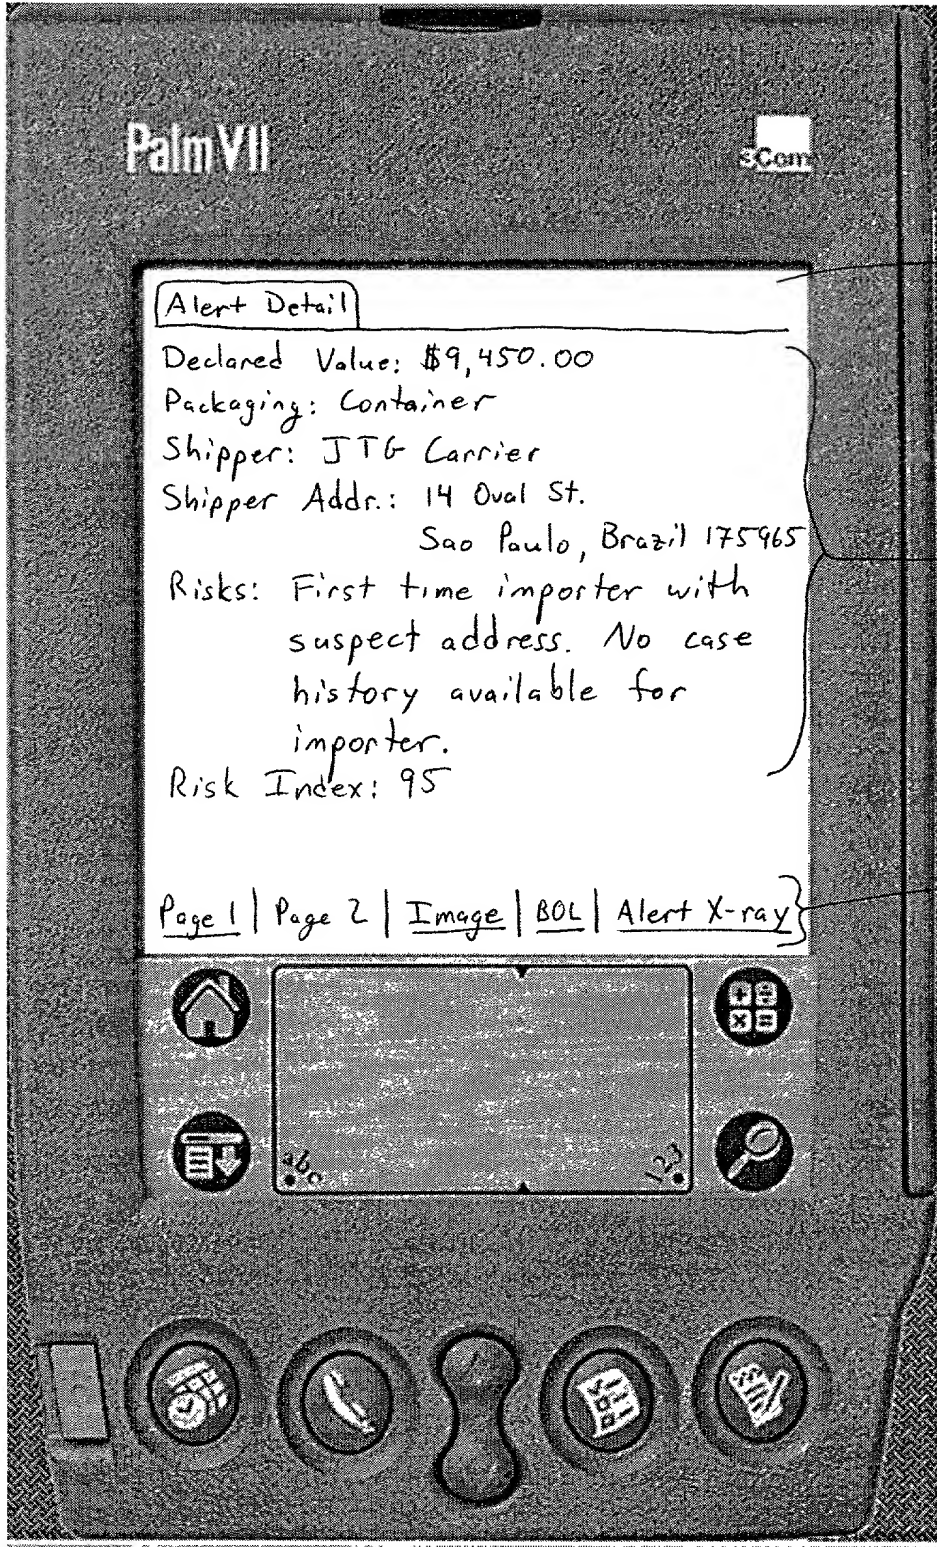 PalmVII
3Com
Alert Detail
Declared Value: $9,450.00
Packaging: Container
Shipper: JTG Carrier
Shipper Addr.: 14 Oval St.
Sao Paulo, Brazil 175965
Risks: First time importer with
suspect address. No case
history available for
importer.
Risk Index: 95
Page 1 | Page 2 | Image | BOL | Alert X-ray
abc
123